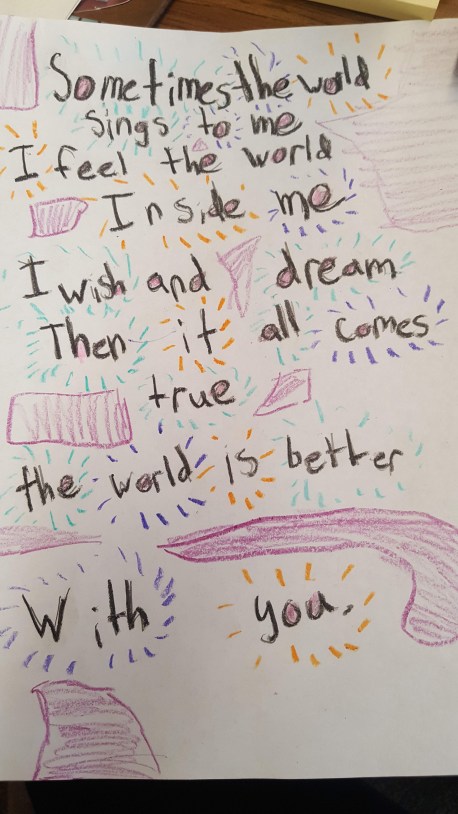 Sometimes the wolld
sings to me
I feel the world
Inside me
I wish and dream
Then it all comes
true
the world is better
With you.